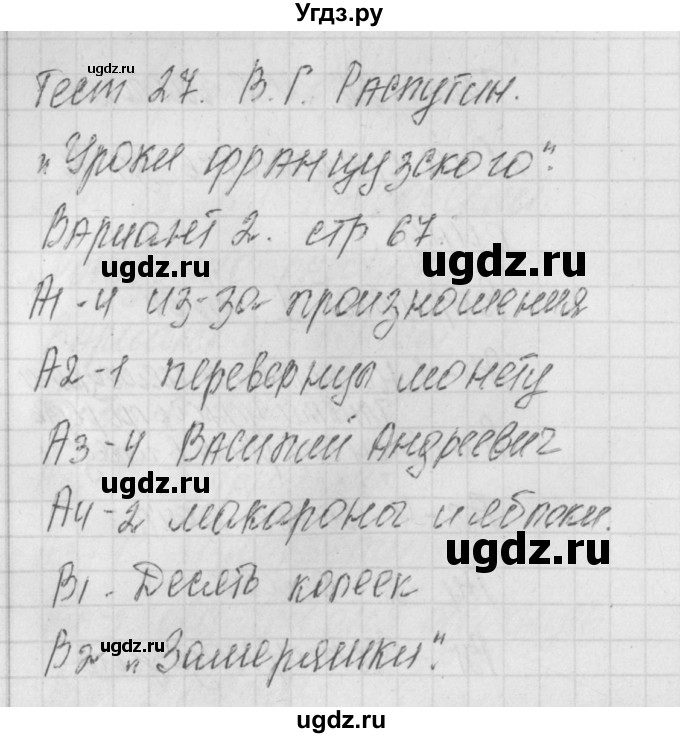 Угдз.ру
Тест 27. В. Г. Распутин.
"Уроки французского".
Вариант 2. стр 67.
А1-4 из-за произношения
А2-1 перевернуы монету
А3-4 Василий Андреевич
А4-2 макароны и яблоки.
В1. Десять копеек
В2 "Замеряшки".
ugdz.ru
ugdz.ru
ugdz.ru
ugdz.ru
ugdz.ru
ugdz.ru
ugdz.ru
ugdz.ru
ugdz.ru
ugdz.ru
ugdz.ru